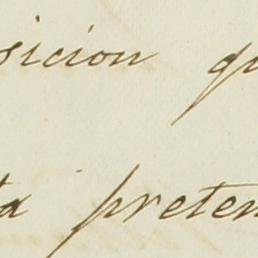 sicion qu
ta preten